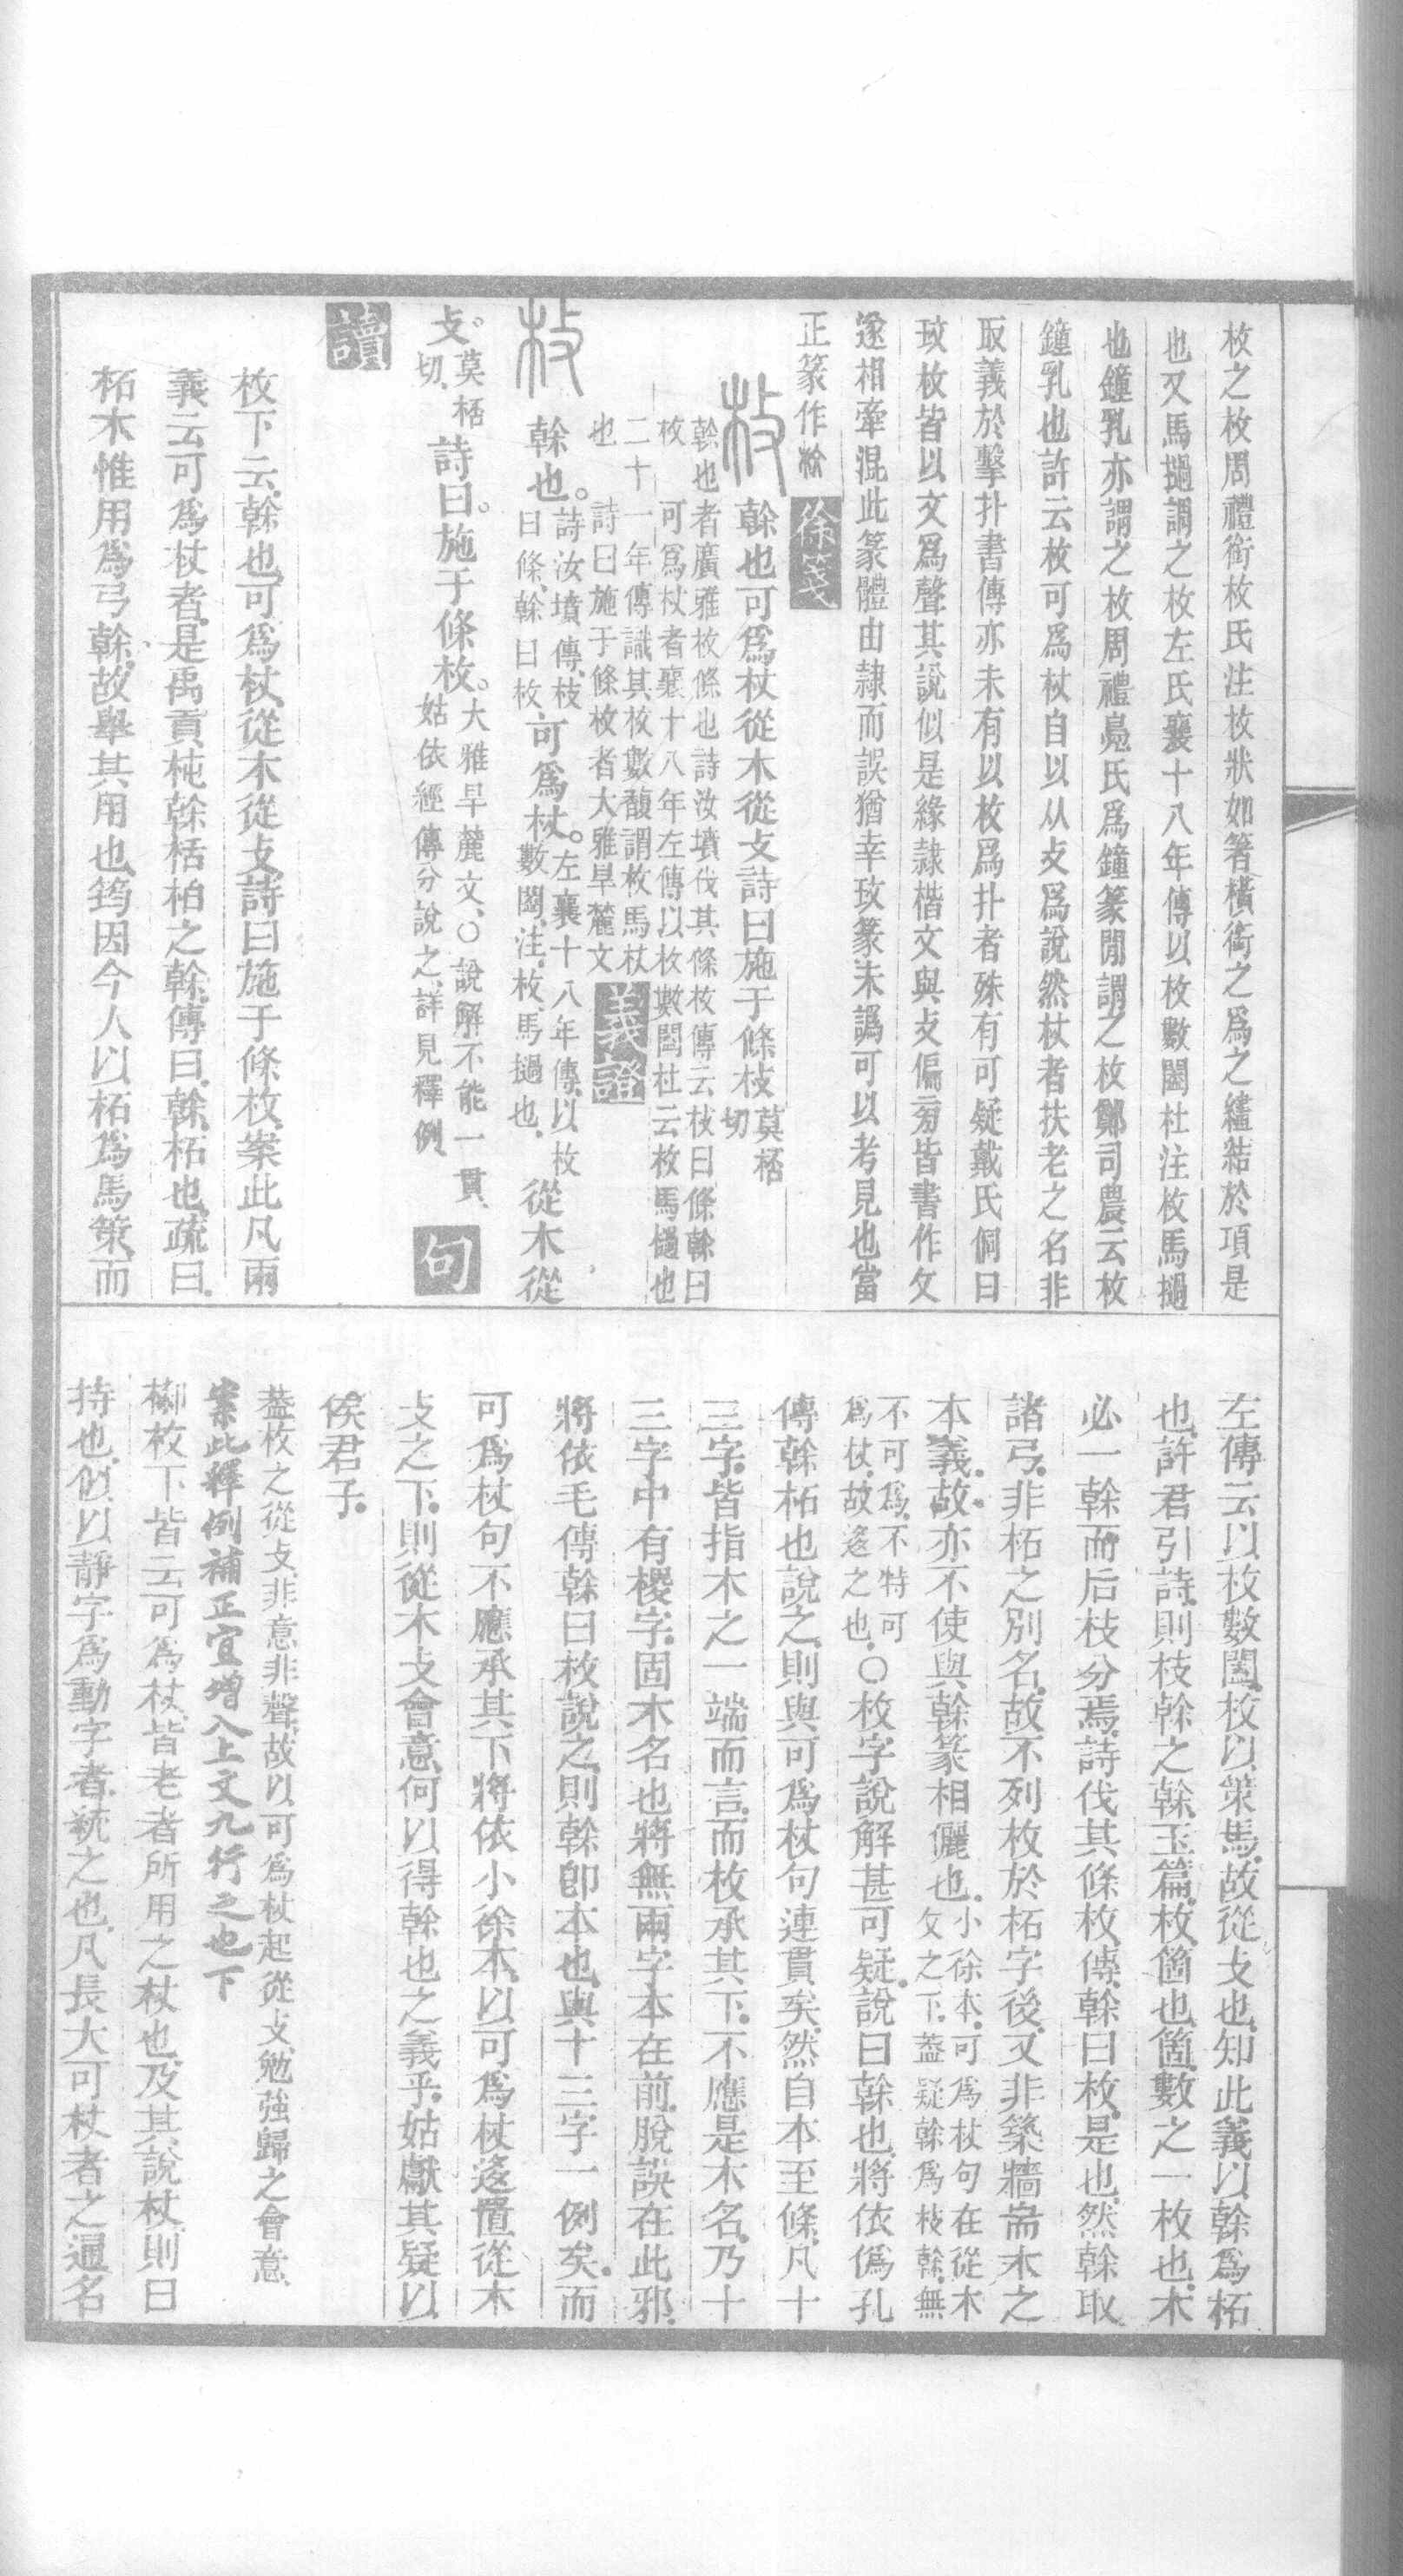 枚之枚周禮銜枚氏注枚狀如箸橫銜之爲之繣結於項是
也又馬撾謂之枚左氏襄十八年傳以枚數闔杜注枚馬撾
也鐘乳亦謂之枚周禮鳧氏爲鐘篆閒謂之枚鄭司農云枚
鐘乳也許云枚可爲杖自以从攴爲說然杖者扶老之名非
取義於擊扑書傳亦未有以枚爲扑者殊有可疑戴氏侗曰
玫枚皆以文爲聲其說似是緣隸楷文與攴偏旁皆書作攵
遂相牽混此篆體由隸而誤猶幸玫篆未譌可以考見也當
正篆作
徐箋
榦也可爲杖從木從攴詩曰施于條枚
莫桮
切
榦也者廣雅枚條也詩汝墳伐其條枚傳云枝曰條榦曰
枚　可爲杖者襄十八年左傳以枚數闔杜云枚馬檛也
二十一年傳識其枚數馥謂枚馬杖
也　詩曰施于條枚者大雅旱麓文
義證
榦也。
詩汝墳傳、枝
曰條、榦曰枚
可爲杖。
左襄十八年傳、以枚
數闔、注、枚、馬撾也、
從木從
攴。
莫桮
切、
詩曰。施于條枚。
大雅旱麓文、○說解不能一貫、
姑依經傳分說之、詳見釋例、
句
讀
枚下云、榦也、可爲杖、從木從攴、詩曰施于條枚、案此凡兩
義、云可爲杖者、是禹貢杶榦栝柏之榦、傳曰、榦、柘也、疏曰、
柘木惟用爲弓榦、故舉其用也、筠因今人以柘爲馬策、而
左傳云以枚數闔、枚以策馬、故從攴也、知此義以榦爲柘
也、許君引詩、則枝榦之榦、玉篇、枚、箇也、箇、數之一枚也、木
必一榦而后枝分焉、詩伐其條枚、傳、榦曰枚、是也、然榦取
諸弓、非柘之別名、故不列枚於柘字後、又非築牆耑木之
本義、故亦不使與榦篆相儷也、
小徐本、可爲杖句在從木
攵之下、蓋疑榦爲枝榦、無
不可爲、不特可
爲杖、故迻之也、
○枚字說解甚可疑、說曰榦也、將依僞孔
傳榦柘也說之、則與可爲杖句連貫矣、然自本至條、凡十
三字、皆指木之一端而言、而枚承其下、不應是木名、乃十
三字中有㮨字、固木名也、將無兩字本在前、脫誤在此邪、
將依毛傳榦曰枚說之、則榦卽本也、與十三字一例矣、而
可爲杖句不應承其下、將依小徐本、以可爲杖迻置從木
攴之下、則從木攴會意、何以得榦也之義乎、姑獻其疑、以
俟君子、
蓋枚之從攴、非意非聲、故以可爲杖起從攴、勉強歸之會意、
案此釋例補正宜增入上文九行之也下
枚下皆云可爲杖、皆老者所用之杖也、及其說杖、則曰
持也、似以靜字爲動字者、統之也、凡長大可杖者之通名